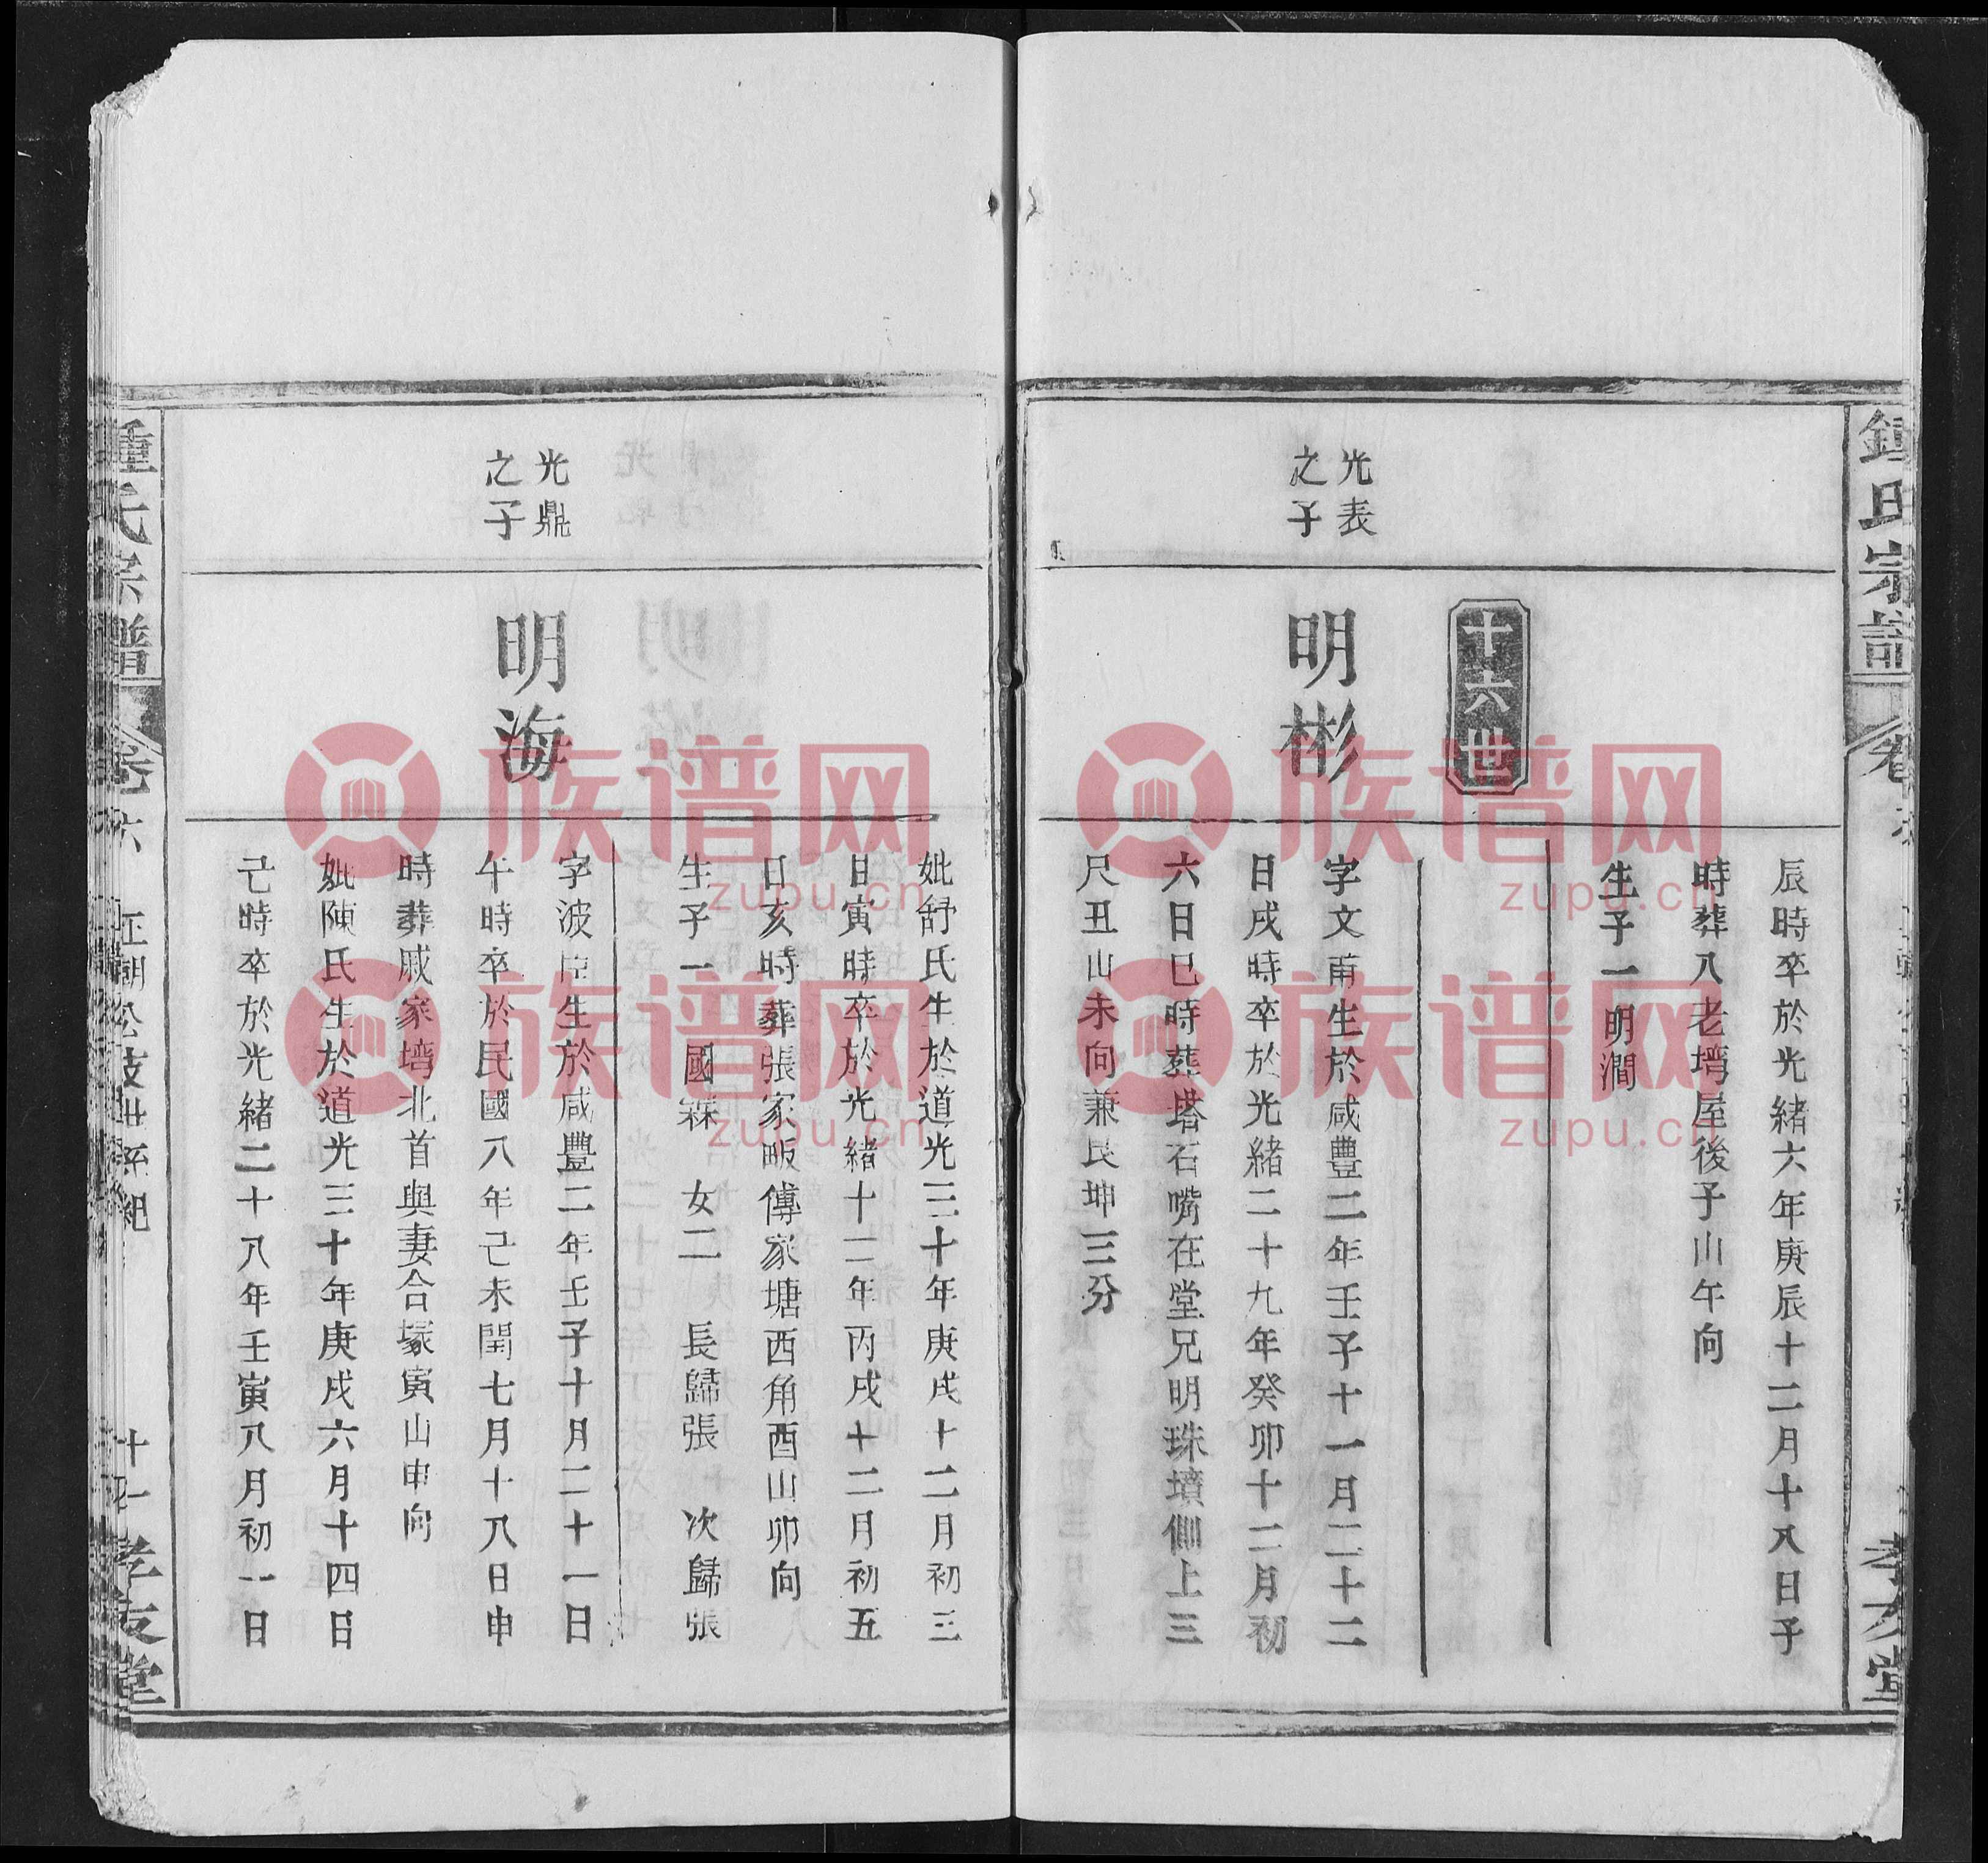 鍾氏宗譜
孝友堂
辰時卒於光緒六年庚辰十二月十八日子
時葬八老塆屋後子山午向
生子一明澗
十六世
光表
之子
明彬
字文甫生於咸豐二年壬子十一月二十二
日戌時卒於光緒二十九年癸卯十二月初
六日巳時葬塔石嘴在堂兄明珠墳側上三
尺丑山未向兼艮坤三分
妣舒氏生於道光三十年庚戌十二月初三
日寅時卒於光緒十二年丙戌十二月初五
日亥時葬張家畈傅家塘西角酉山卯向
生子一 國霖 女二 長歸張 次歸張
光鼎
之子
明海
字波臣生於咸豐二年壬子十月二十一日
午時卒於民國八年己未閏七月十八日申
時葬戚家塆北首與妻合塚寅山申向
妣陳氏生於道光三十年庚戌六月十四日
己時卒於光緒二十八年壬寅八月初一日
鍾氏宗譜
卷六
朝公支世系紀
孝友堂
族谱网
zupu.cn
族谱网
zupu.cn
族谱网
zupu.cn
族谱网
zupu.cn